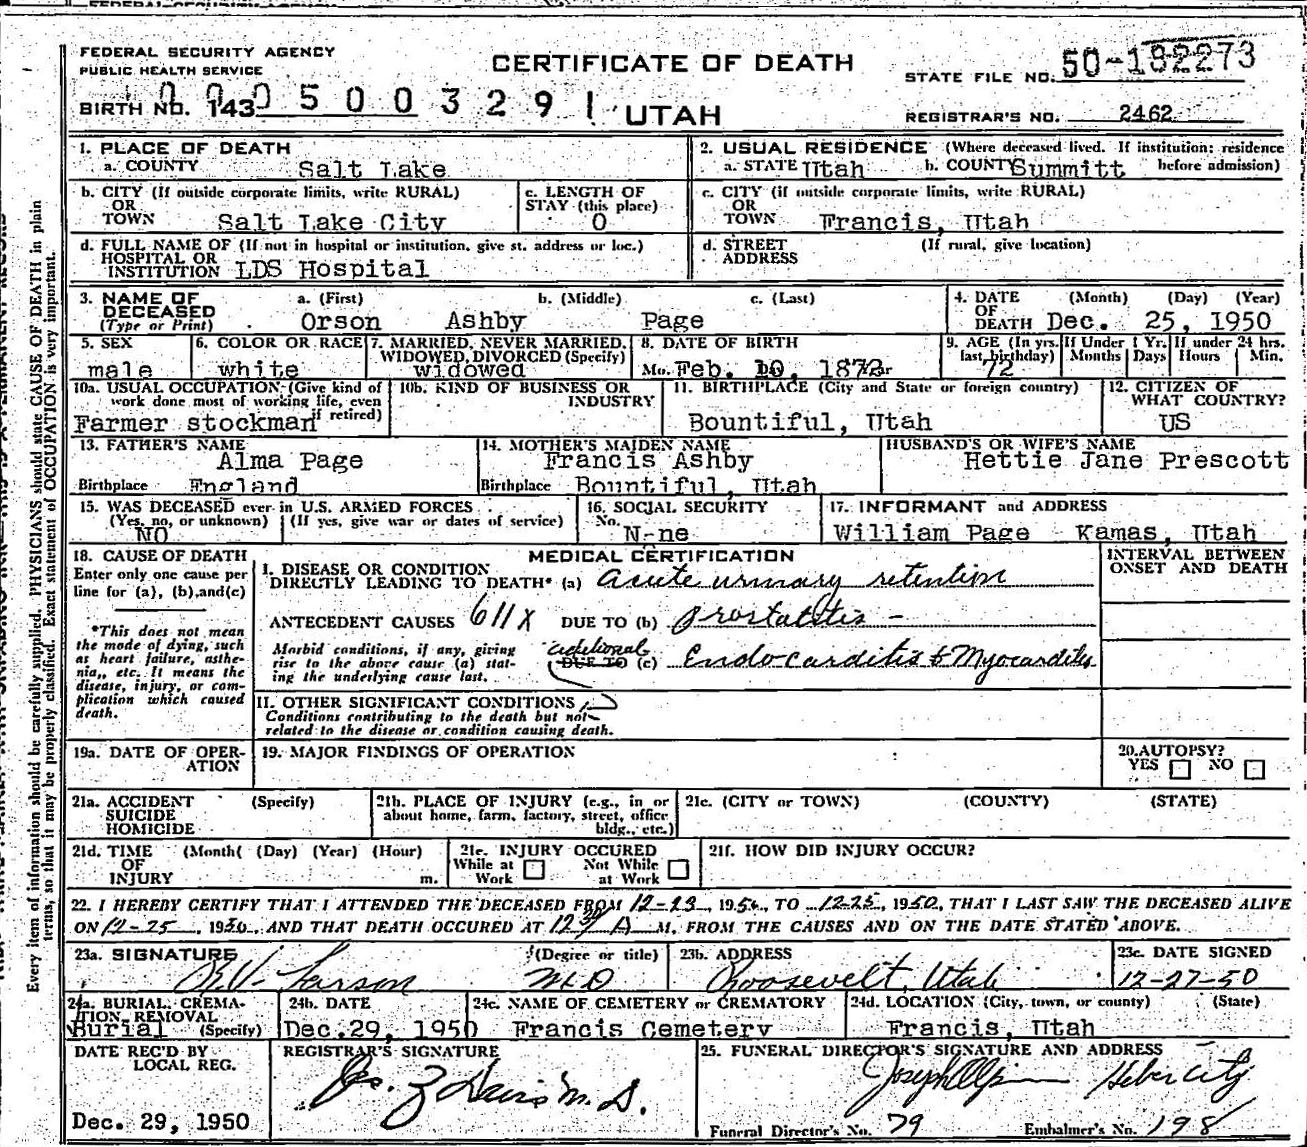 FEDERAL SECURITY AGENCY
PUBLIC HEALTH SERVICE
CERTIFICATE OF DEATH
STATE FILE NO. 50-192273
BIRTH NO. 143 05003291 UTAH
REGISTRAR'S NO. 2462
1. PLACE OF DEATH
a. COUNTY Salt Lake
2. USUAL RESIDENCE (Where deceased lived. If institution: residence before admission)
a. STATE Utah b. COUNTY Summitt
b. CITY (If outside corporate limits, write RURAL) OR TOWN Salt Lake City
c. LENGTH OF STAY (this place) 0
c. CITY (if outside corporate limits, write RURAL) OR TOWN Francis, Utah
d. FULL NAME OF (If not in hospital or institution, give st. address or loc.) HOSPITAL OR INSTITUTION LDS Hospital
d. STREET ADDRESS (If rural, give location)
3. NAME OF DECEASED (Type or Print)
a. (First) b. (Middle) c. (Last)
Orson Ashby Page
4. DATE OF DEATH (Month) (Day) (Year)
Dec. 25, 1950
5. SEX male
6. COLOR OR RACE white
7. MARRIED, NEVER MARRIED, WIDOWED, DIVORCED (Specify) widowed
8. DATE OF BIRTH
Mo. Feb. 10, 1872
9. AGE (In yrs. last birthday) 72
If Under 1 Yr. Months Days
If under 24 hrs. Hours Min.
10a. USUAL OCCUPATION (Give kind of work done most of working life, even if retired)
Farmer stockman
10b. KIND OF BUSINESS OR INDUSTRY
11. BIRTHPLACE (City and State or foreign country)
Bountiful, Utah
12. CITIZEN OF WHAT COUNTRY?
US
13. FATHER'S NAME
Alma Page
Birthplace England
14. MOTHER'S MAIDEN NAME
Francis Ashby
Birthplace Bountiful, Utah
HUSBAND'S OR WIFE'S NAME
Hettie Jane Prescott
15. WAS DECEASED ever in U.S. ARMED FORCES
(Yes, no, or unknown) (If yes, give war or dates of service)
NO
16. SOCIAL SECURITY No.
N-ne
17. INFORMANT and ADDRESS
William Page Kamas, Utah
18. CAUSE OF DEATH
Enter only one cause per line for (a), (b), and (c)
*This does not mean the mode of dying, such as heart failure, asthenia, etc. It means the disease, injury, or complication which caused death.
MEDICAL CERTIFICATION
INTERVAL BETWEEN ONSET AND DEATH
I. DISEASE OR CONDITION DIRECTLY LEADING TO DEATH* (a) Acute urinary retention
ANTECEDENT CAUSES 611X DUE TO (b) prostatitis -
Morbid conditions, if any, giving rise to the above cause (a) stating the underlying cause last.
additional DUE TO (c) Endocarditis & Myocarditis
II. OTHER SIGNIFICANT CONDITIONS
Conditions contributing to the death but not related to the disease or condition causing death.
19a. DATE OF OPERATION
19. MAJOR FINDINGS OF OPERATION
20. AUTOPSY?
YES NO
21a. ACCIDENT SUICIDE HOMICIDE (Specify)
21b. PLACE OF INJURY (e.g., in or about home, farm, factory, street, office bldg., etc.)
21c. (CITY or TOWN) (COUNTY) (STATE)
21d. TIME OF INJURY (Month( (Day) (Year) (Hour) m.
21e. INJURY OCCURED
While at Work Not While at Work
21f. HOW DID INJURY OCCUR?
22. I HEREBY CERTIFY THAT I ATTENDED THE DECEASED FROM 12-23, 1950, TO 12-25, 1950, THAT I LAST SAW THE DECEASED ALIVE
ON 12-25, 1950, AND THAT DEATH OCCURED AT 12 30 A M. FROM THE CAUSES AND ON THE DATE STATED ABOVE.
23a. SIGNATURE (Degree or title)
Larson MD
23b. ADDRESS
Roosevelt, Utah
23c. DATE SIGNED
12-27-50
24a. BURIAL, CREMATION, REMOVAL (Specify)
Burial
24b. DATE
Dec. 29, 1950
24c. NAME OF CEMETERY or CREMATORY
Francis Cemetery
24d. LOCATION (City, town, or county) (State)
Francis, Utah
DATE REC'D BY LOCAL REG.
Dec. 29, 1950
REGISTRAR'S SIGNATURE
M.D.
25. FUNERAL DIRECTOR'S SIGNATURE AND ADDRESS
Heber City
Funeral Director's No. 79 Embalmer's No. 198
Every item of information should be carefully supplied. PHYSICIANS should state CAUSE OF DEATH in plain
terms, so that it may be properly classified. Exact statement of OCCUPATION is very important.